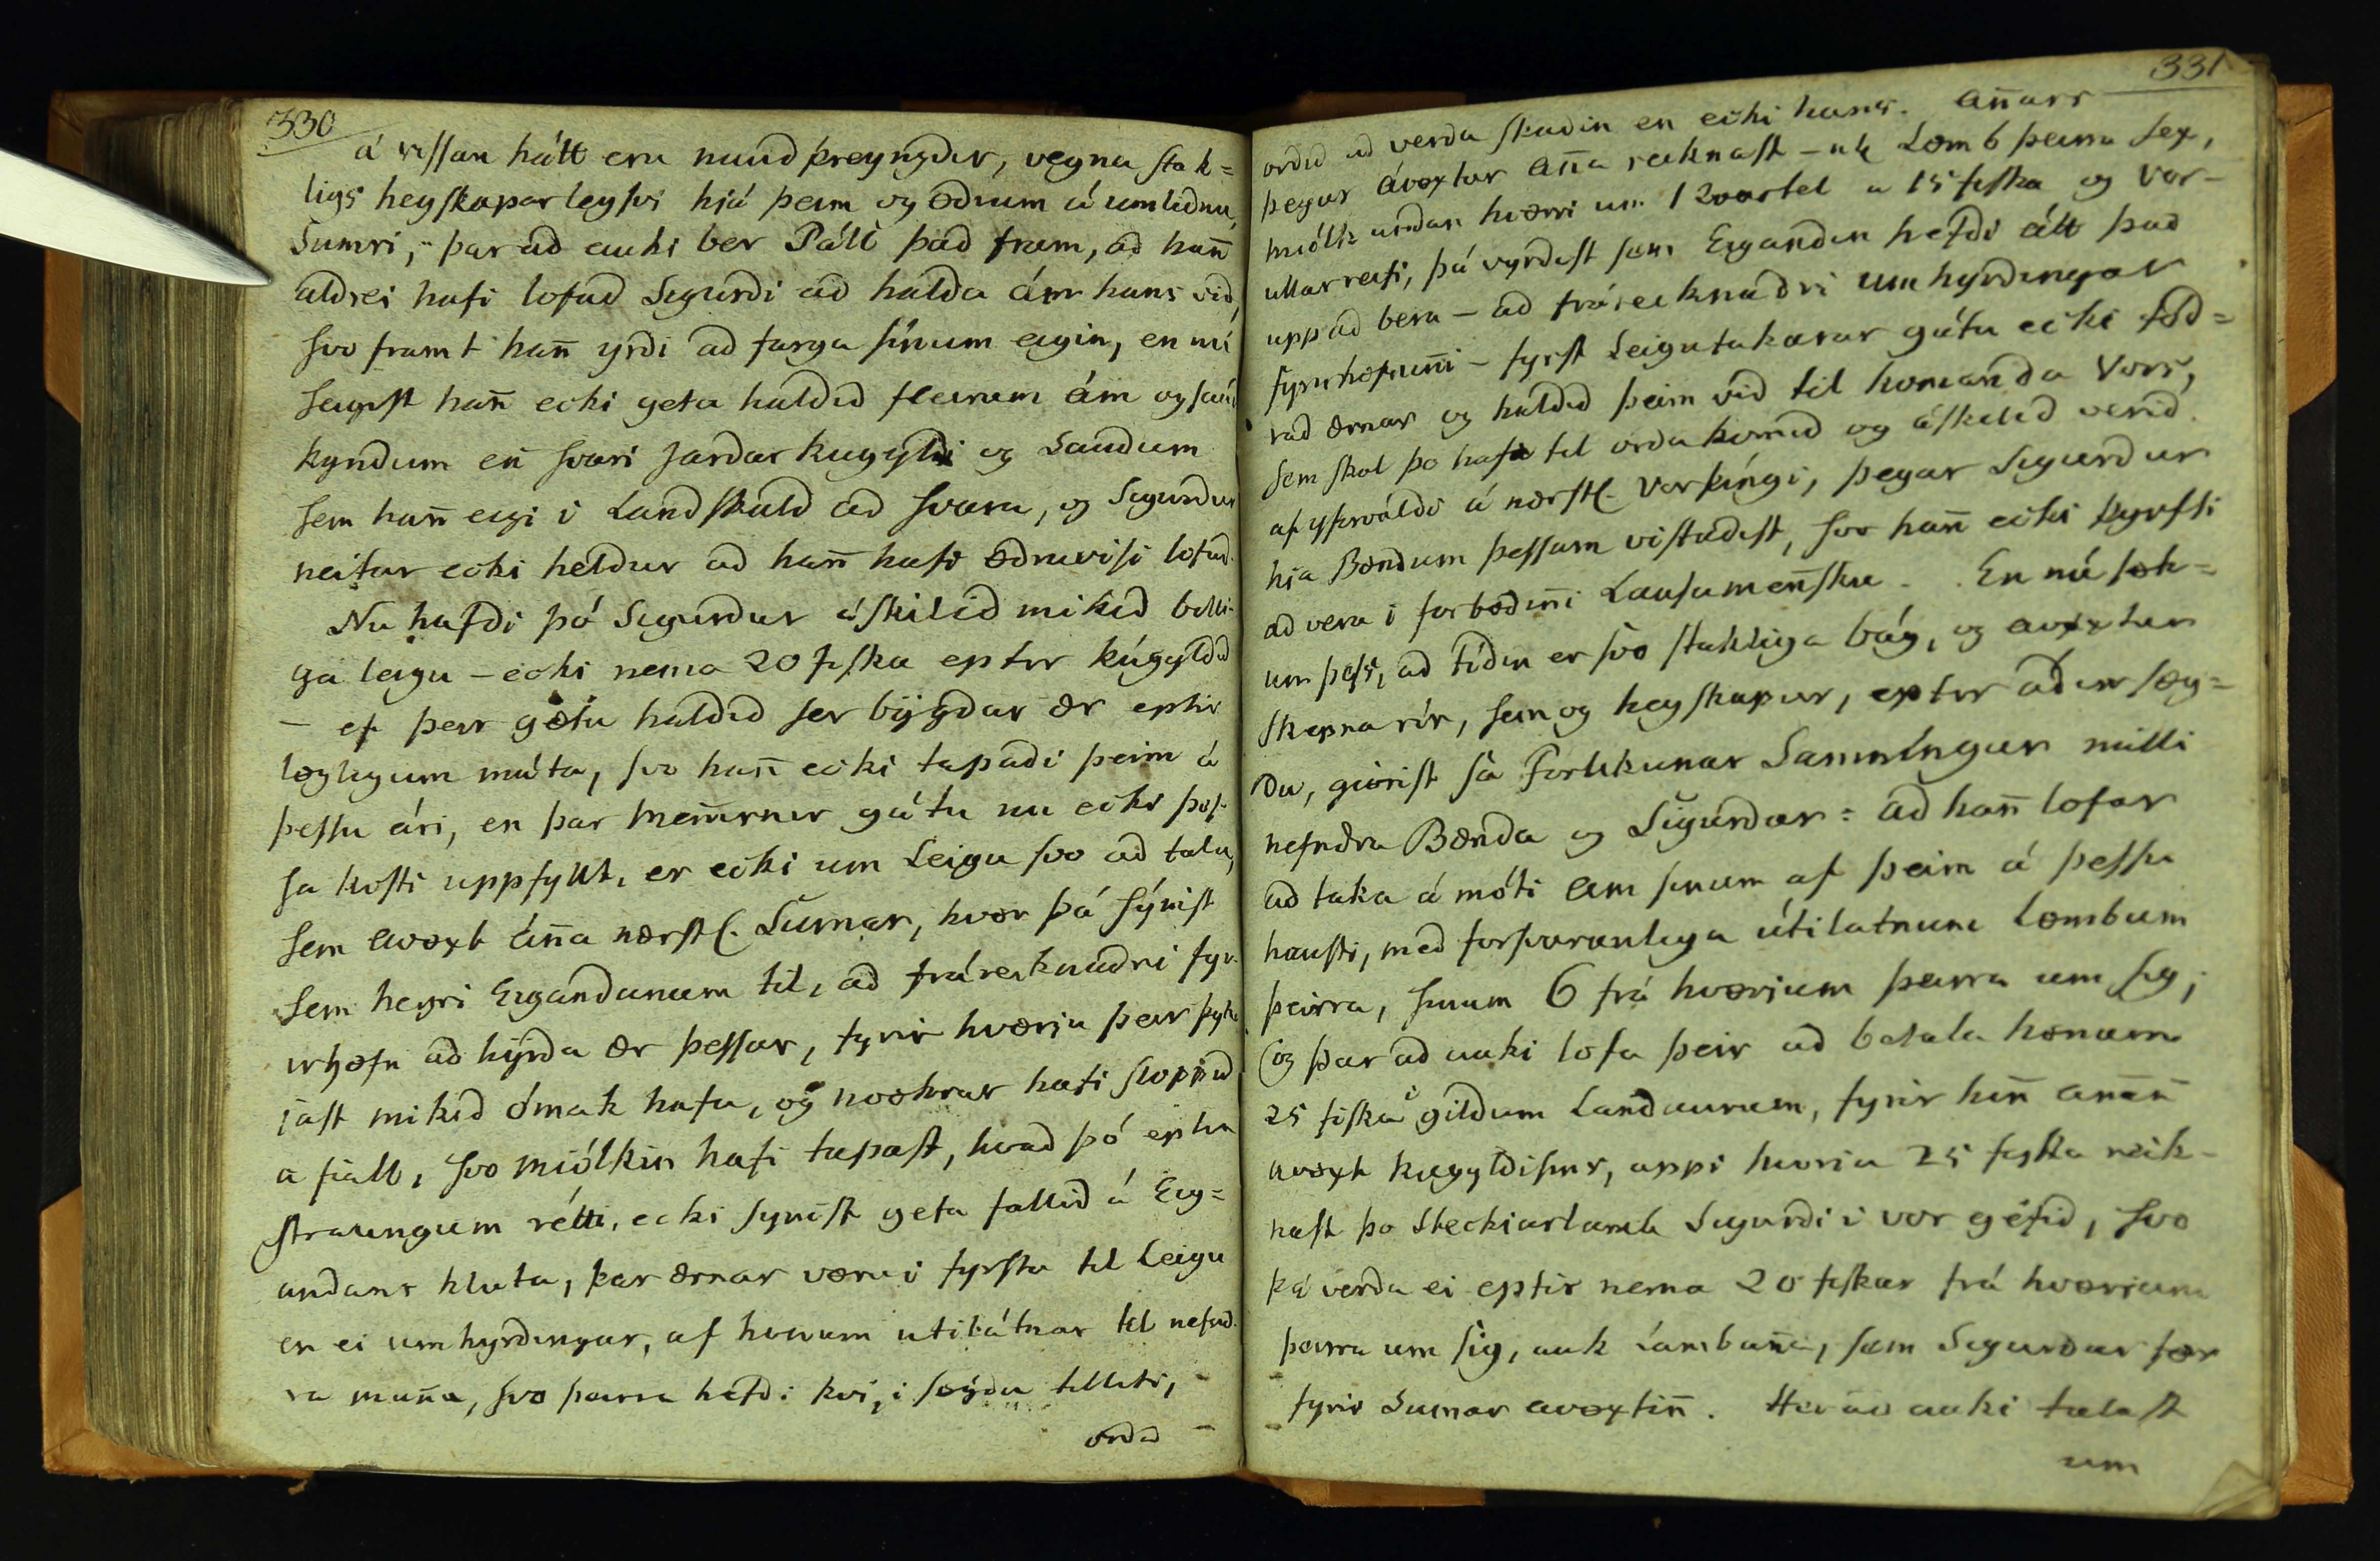 330
á vissan hátt eru nauðþreyngðir, vegna stak=
ligs heyskaparleysis hjá þeim og öðrum á umliðnu
Sumri, þar að auki ber Páll það fram, að hañ
aldrei hafi lofað Sigurði að halda ám hans við,
svo framt hañ yrði að farga sínum eigin, en nú
segist hañ ecki geta haldið fleirum ám og sauð
kyndum eñ svari Jarðarkugyldi og Sauðum
sem hañ eigi i Landskuld að svara, og Sigurður
neitar ecki heldur að hañ hafi öðruvisi lofað.
Nu hafði þó Sigurður áskilið mikið billi-
ga leigu - ecki nema 20 fiska eptir kúgyldið
- ef þeir gætu haldið ser bygðar ær eptir
löglegum máta, svo hañ ecki tapaði þeim á
þessu ári, en þar Meñirner gátu nu ecki þes-
sa kosti uppfyllt, er ecki um Leigu svo að tala,
sem avöxt áña nærstl. Sumar, hvör þá sýnist
sem heyri Eigandanum til, að fráreiknaðri fyr-
irhöfn að hýrða ær þessar, fyrir hvörju þeir þyk-
jast mikið ómak hafa, og nockrar hafi sloppið
á fiall, svo miólkin hafi tapast, hvað þó eptir
straungum rétti, ecki synist geta fallið á Eig=
andans hluta, þar ærnar væru i fyrstu til Leigu
en ei umhyrðingar, af hönum utilátnar til nefnd-
ra maña, svo þeirra hefði kví, i søgðu tilliti,
orðið
331
orðið að verða skaðin en ecki hans. Añars
þegar ávöxtur áña reiknast - nl: Lömb þeirra sex,
miólk undan hvörri um 1 Qvartel a 15 fiska og Vor-
ullar reifi, þá vyrðist sem Eigandin hefði átt það
upp að bera - að fráreiknaðri umhyrðingar
fyrirhöfniñi - fyrst Leigutakarar gátu ecki fóð=
rað ærnar og haldið þeim við til komanda Vors,
sem skal þo hafa til orða komið og áskilið verið
af yfirváldi á nærstl. Vorþingi, þegar Sigurður
hia Bændum þessum vistaðist, svo hañ ecki þyrfti
að vera i forboðiñi Lausameñsku. En nú sök=
um þess, að tíðin er svo stakliga bág, og avöxtur
skepna rír, sem og heyskapur, eptir aður sög=
ðu, giörist sá Forlikunar Samningur milli
nefndra Bænda og Sigurðar: að hañ lofar
að taka á móti ám sinum af þeim á þessu
hausti, með forsvaranlega útilatnum Lömbum
þeirra, sinum 6 frá hvörjum þeirra um sig;
og þar að auki lofa þeir að betala hönum
25 fiska í gildum Landaurum, fyrir hiñ añañ
avöxt kugyldisins, uppi hvoria 25 fiska reik-
nast þo Steckiarlamb Sigurði i vor géfið, svo
þá verða ei eptir nema 20 fiskar frá hvörjum
þeirra um sig, auk Lambaña, sem Sigurður fær
fyrir Sumar avöxtiñ. Her að auki talast
um